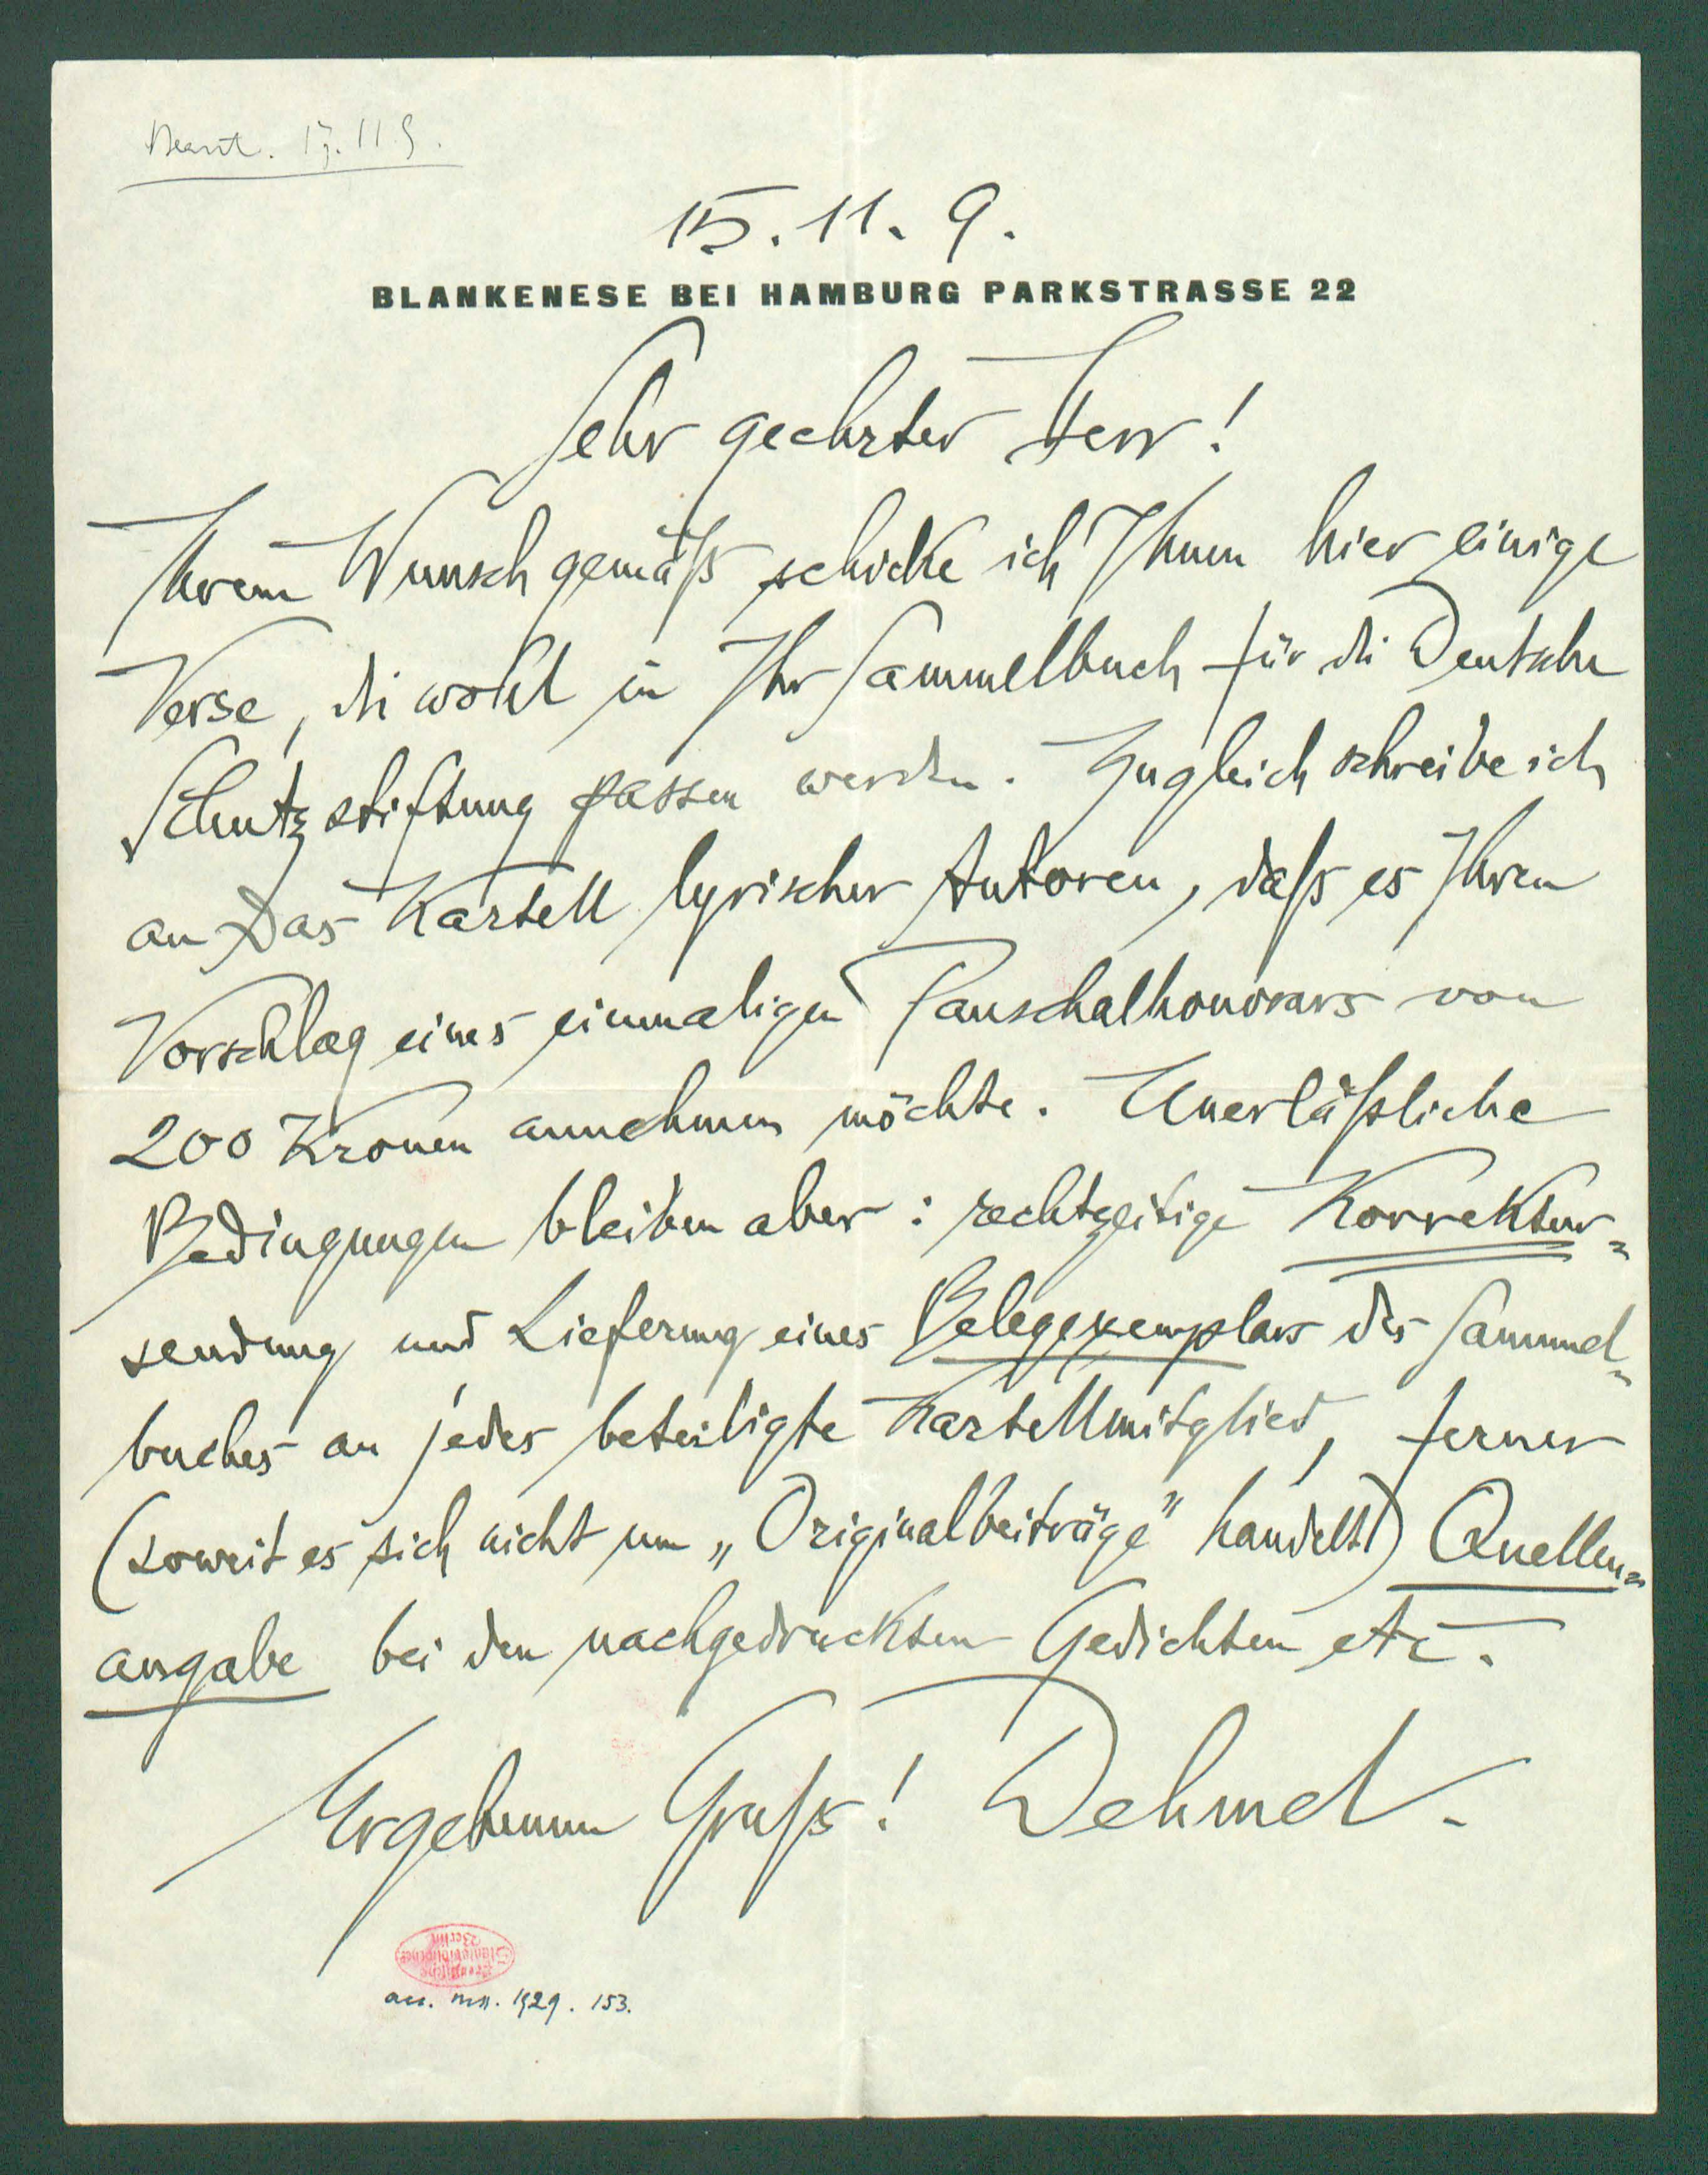 Beant. 17.11.9.
15.11.9.
BLANKENESE BEI HAMBURG PARKSTRASSE 22
Sehr geehrter Herr!
Ihrem Wunsch gemäß schicke ich Ihnen hier einige
Verse, die wohl in Ihr Sammelbuch für die Deutsche
Schutzstiftung passen werden. Zugleich schreibe ich
an das Kartell lyrischer Autoren, daß es Ihren
Vorschlag eines einmaligen Pauschalhonorars von
200 Kronen annehmen möchte. Unerläßliche
Bedingungen bleiben aber: rechtzeitige Korrektur=
sendung und Lieferung eines Belegexemplars des Sammel=
buches an jedes beteiligte Kartellmitglied, ferner
(soweit es sich nicht um „Originalbeiträge" handelt) Quellen=
angabe bei den nachgedruckten Gedichten etc.
Ergebenen Gruß! Dehmel.
Preußische
Staatsbibliothek
Berlin
acc. ms. 1929. 153.